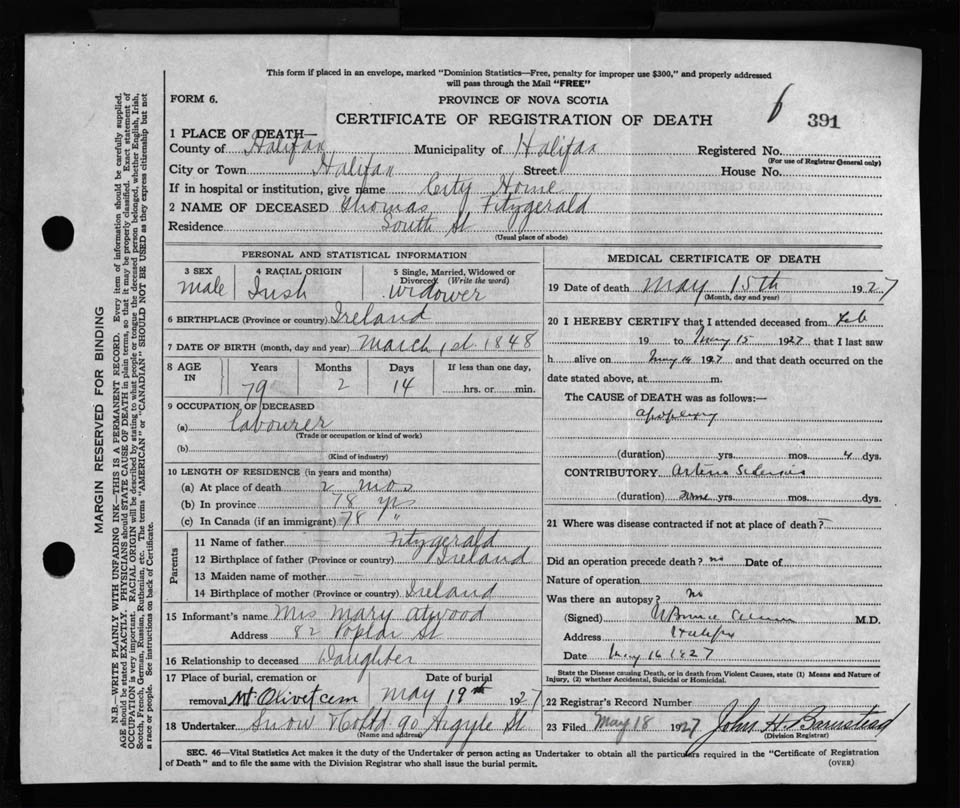 This form if placed in an envelope, marked "Dominion Statistics—Free, penalty for improper use $300," and properly addressed
will pass through the Mail "FREE"
FORM 6.
PROVINCE OF NOVA SCOTIA
6
391
CERTIFICATE OF REGISTRATION OF DEATH
1 PLACE OF DEATH—
County of Halifax Municipality of Halifax Registered No.
(For use of Registrar General only)
City or Town Halifax Street House No.
If in hospital or institution, give name City Home
2 NAME OF DECEASED Thomas Fitzgerald
Residence South St
(Usual place of abode)
PERSONAL AND STATISTICAL INFORMATION
3 SEX
male
4 RACIAL ORIGIN
Irish
5 Single, Married, Widowed or
Divorced (Write the word)
widower
6 BIRTHPLACE (Province or country) Ireland
7 DATE OF BIRTH (month, day and year) March 1st 1848
8 AGE
IN
Years Months Days If less than one day,
79 2 14 hrs. or min.
9 OCCUPATION OF DECEASED
(a) labourer
(Trade or occupation or kind of work)
(b)
(Kind of industry)
10 LENGTH OF RESIDENCE (in years and months)
(a) At place of death 2 mos
(b) In province 78 yrs
(c) In Canada (if an immigrant) 78 "
Parents
11 Name of father Fitzgerald
12 Birthplace of father (Province or country) Ireland
13 Maiden name of mother —
14 Birthplace of mother (Province or country) Ireland
15 Informant's name Mrs Mary Atwood
Address 82 Poplar St
16 Relationship to deceased Daughter
17 Place of burial, cremation or Date of burial
removal Mt. Olivet cem May 19th 1927
18 Undertaker Snow & Co Ltd 90 Argyle St
(Name and address)
MEDICAL CERTIFICATE OF DEATH
19 Date of death May 15th 1927
(Month, day and year)
20 I HEREBY CERTIFY that I attended deceased from Feb
19 to May 15 1927 that I last saw
h alive on May 14 1927 and that death occurred on the
date stated above, at m.
The CAUSE of DEATH was as follows:—
apoplexy
(duration) yrs. mos. 4 dys.
CONTRIBUTORY Arterio Sclerosis
(duration) Some yrs. mos. dys.
21 Where was disease contracted if not at place of death? —
Did an operation precede death? no Date of
Nature of operation
Was there an autopsy? no
(Signed) M.D.
Address Halifax
Date May 16 1927
State the Disease causing Death, or in death from Violent Causes, state (1) Means and Nature of
Injury, (2) whether Accidental, Suicidal or Homicidal.
22 Registrar's Record Number
23 Filed May 18 1927 John H Barnstead
(Division Registrar)
SEC. 46—Vital Statistics Act makes it the duty of the Undertaker or person acting as Undertaker to obtain all the particulars required in the "Certificate of Registration
of Death" and to file the same with the Division Registrar who shall issue the burial permit.
(OVER)
MARGIN RESERVED FOR BINDING
N.B.—WRITE PLAINLY WITH UNFADING INK—THIS IS A PERMANENT RECORD. Every item of information should be carefully supplied.
AGE should be stated EXACTLY. PHYSICIANS should STATE CAUSE OF DEATH in plain terms, so that it may be properly classified. Exact statement of
OCCUPATION is very important. RACIAL ORIGIN will be described by stating to what people or tongue the deceased person belonged, whether English, Irish,
Scotch, French, German, Russian, Ruthenian, etc. The terms "AMERICAN" or "CANADIAN" SHOULD NOT BE USED as they express citizenship but not
a race or people. See instructions on back of Certificate.